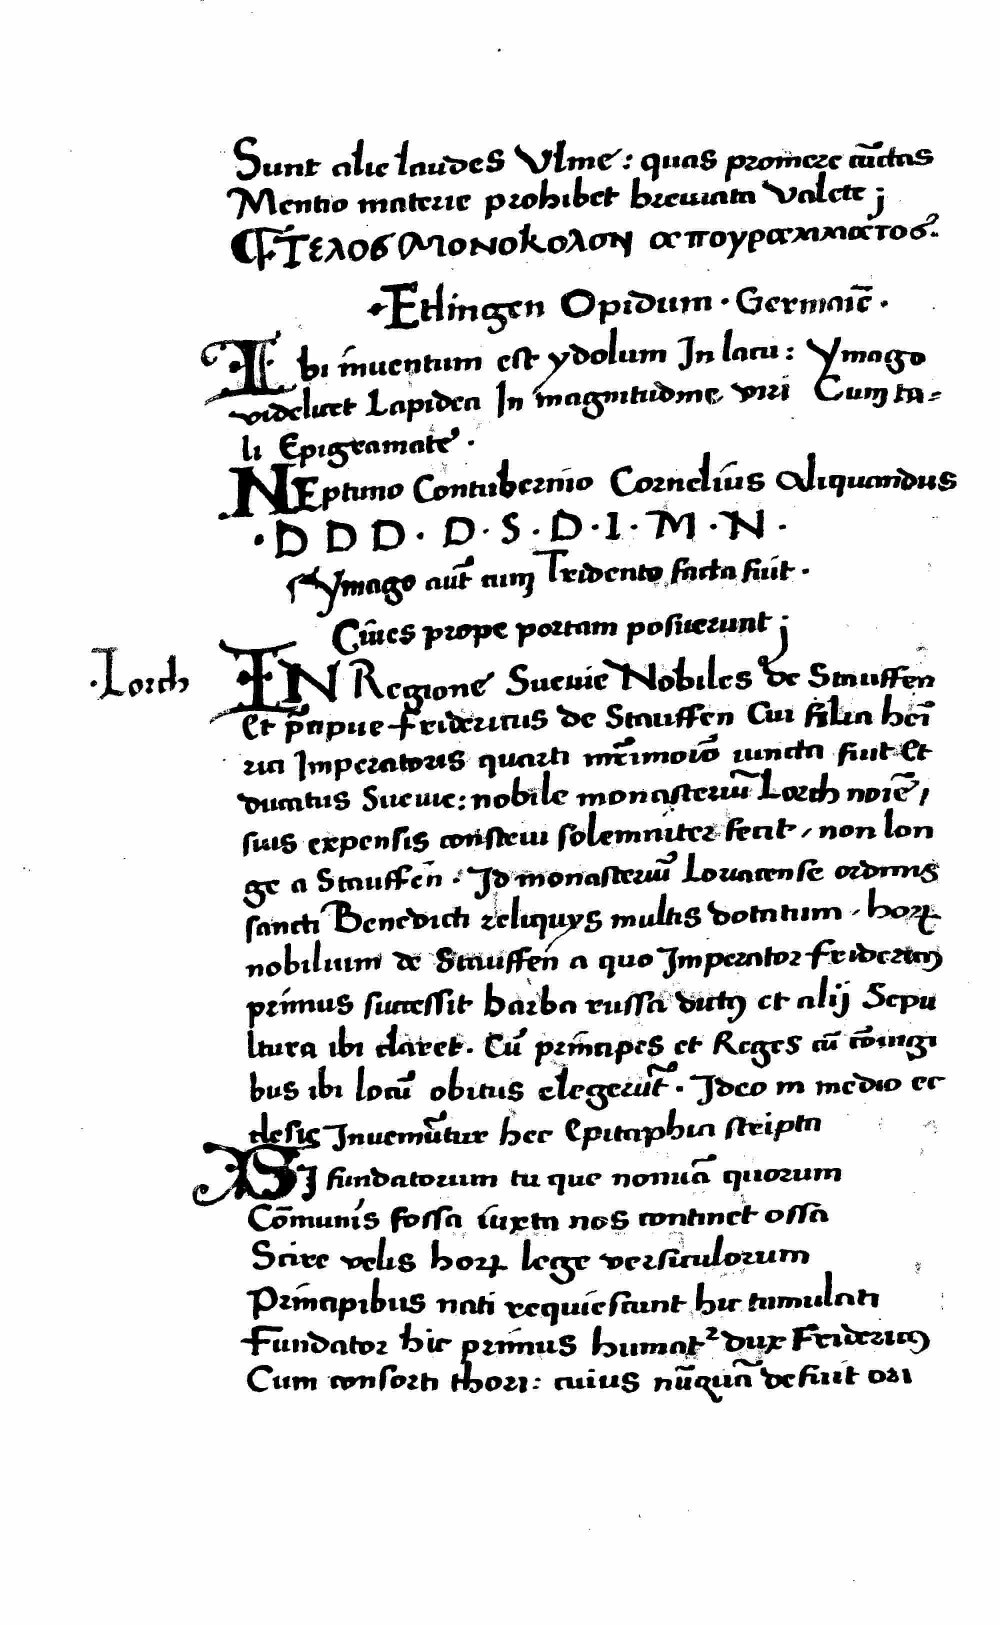 Sunt alie laudes Vlme: quas promere cũctas
Mentio materie prohibet breuiata Valete j
Τελοσ Μονοκολον απογραμματοσ.
·Etlingen Opidum · Germaĩe ·
IBi inuentum est ydolum In lacu: Ymago
videlicet Lapidea In magnitudine viri Cum ta=
li Epigramate ·
NEptuno Contubernio Cornelius Aliquandus
· D D D · D · S · D · I · M · N ·
Ymago aut̃ cum Tridento facta fuit ·
Ciues prope portam posuerunt j
·Lorch
IN Regione Sueuie Nobiles de Stauffen
Et p̃cipue Fridericus de Stauffen Cui filia hẽi
rici Imperatoris quarti mr̃imoĩo iuncta fuit Et
ducatus Sueuie: nobile monasteriũ Lorch noĩe,
suis expensis construi solemniter fecit, non lon
ge a Stauffen · Id monasteriũ Louacense ordinis
sancti Benedicti reliquijs multis dotatum, horꝝ
nobilium de Stauffen a quo Imperator Fridericꝰ
primus successit barba russa dictꝰ et alij Sepu
ltura ibi claret. Cũ principes et Reges cũ cõiugi
bus ibi locũ obitus elegerũt · Ideo in medio ec
clesie Inueniũtur hec Epitaphia scripta
SI fundatorum tu que nomĩa quorum
Cõmunis fossa iuxta nos continet ossa
Scire velis horꝝ lege versiculorum
Principibus nati requiescunt hic tumulati
Fundator hic primus humatꝰ dux Fridericꝰ
Cum consorti thori: cuius nũquã defuit ori